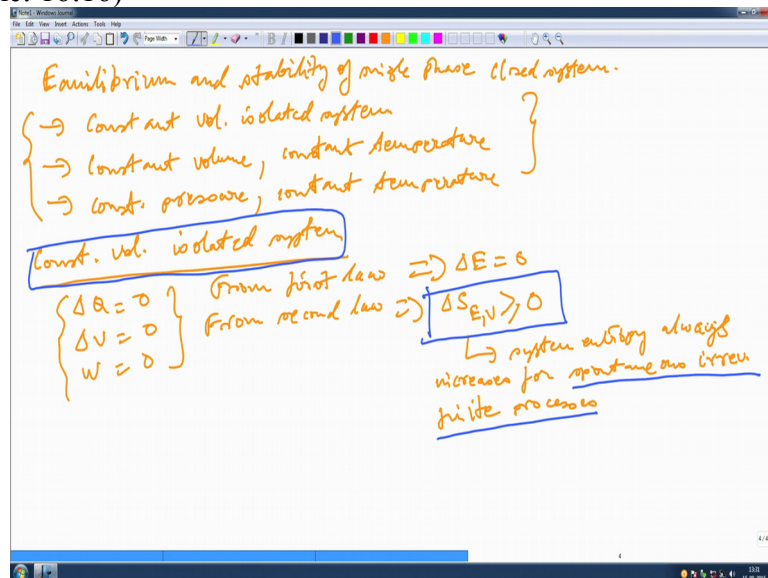 Note1 - Windows Journal
File Edit View Insert Actions Tools Help
Page Width
B
Equilibrium and stability of single phase closed system.
→ Constant vol. isolated system
→ Constant volume, constant temperature
→ const. pressure, constant temperature
Const. vol. isolated system
ΔQ = 0
From first law => ΔE = 0
ΔV = 0
From second law => ΔS_{E,V} ≥ 0
W = 0
↳ system entropy always
increases for spontaneous irrev.
finite processes
4/4
4
13:31